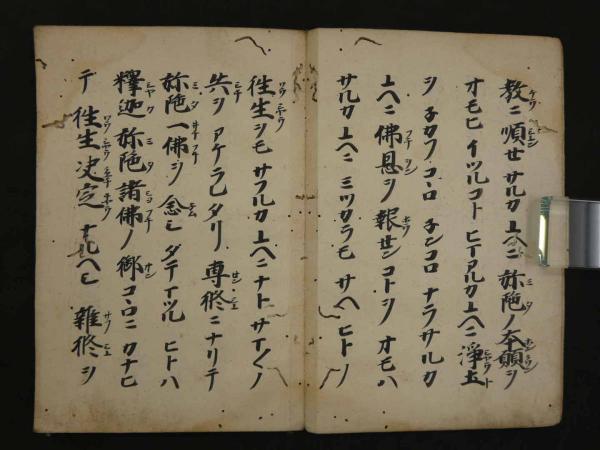 教ニ順セサルカ上ヘニ弥陀ノ本願ヲ
オモヒイツルコトヒマアルカ上ヘニ浄土
ヲネカフコヽロネンコロナラサルカ
上ヘニ佛恩ヲ報センコトヲオモハ
サルカ上ヘニミツカラモサヘヒトノ
往生ヲモサフルカ上ヘニナトサイ〱ノ
失ヲアケラレタリ専修ニナリテ
弥陀一佛ヲ念シタテイツルヒトハ
釋迦弥陀諸佛ノ御コヽロニカナヒ
テ往生决定ナルヘシ雜修ヲ